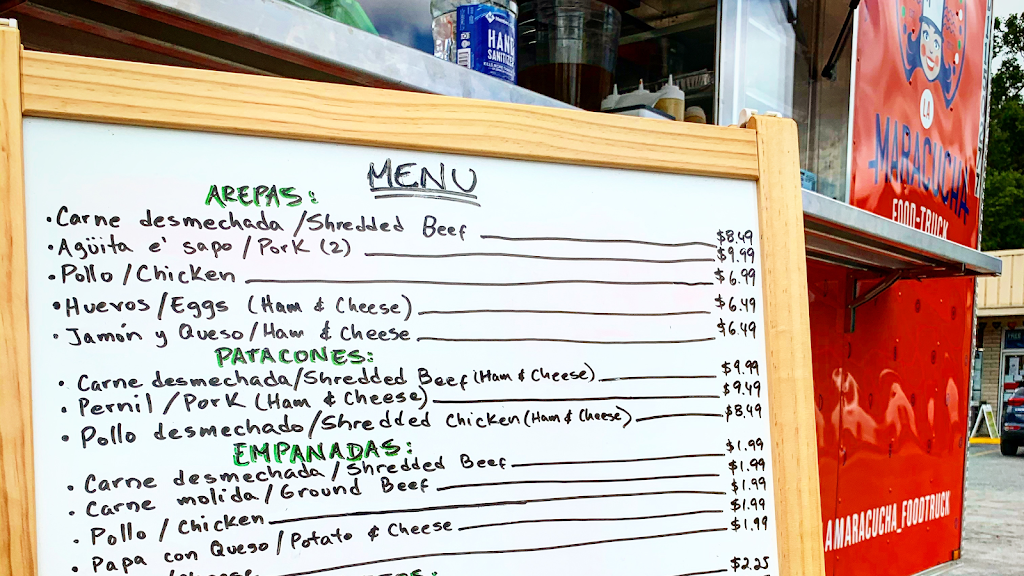 HAND
SANITIZER
MENU
AREPAS:
• Carne desmechada / Shredded Beef $8.49
• Agüita e' sapo / Pork (2) $9.99
• Pollo / Chicken $6.99
• Huevos / Eggs (Ham & Cheese) $6.49
• Jamón y Queso / Ham & Cheese $6.49
PATACONES:
• Carne desmechada / Shredded Beef (Ham & Cheese) $9.99
• Pernil / Pork (Ham & Cheese) $9.49
• Pollo desmechado / Shredded Chicken (Ham & Cheese) $8.49
EMPANADAS:
• Carne desmechada / Shredded Beef $1.99
• Carne molida / Ground Beef $1.99
• Pollo / Chicken $1.99
• Papa con Queso / Potato & Cheese $1.99
/ Cheese $1.99
$2.25
LA
MARACUCHA
FOOD-TRUCK
AMARACUCHA_FOODTRUCK